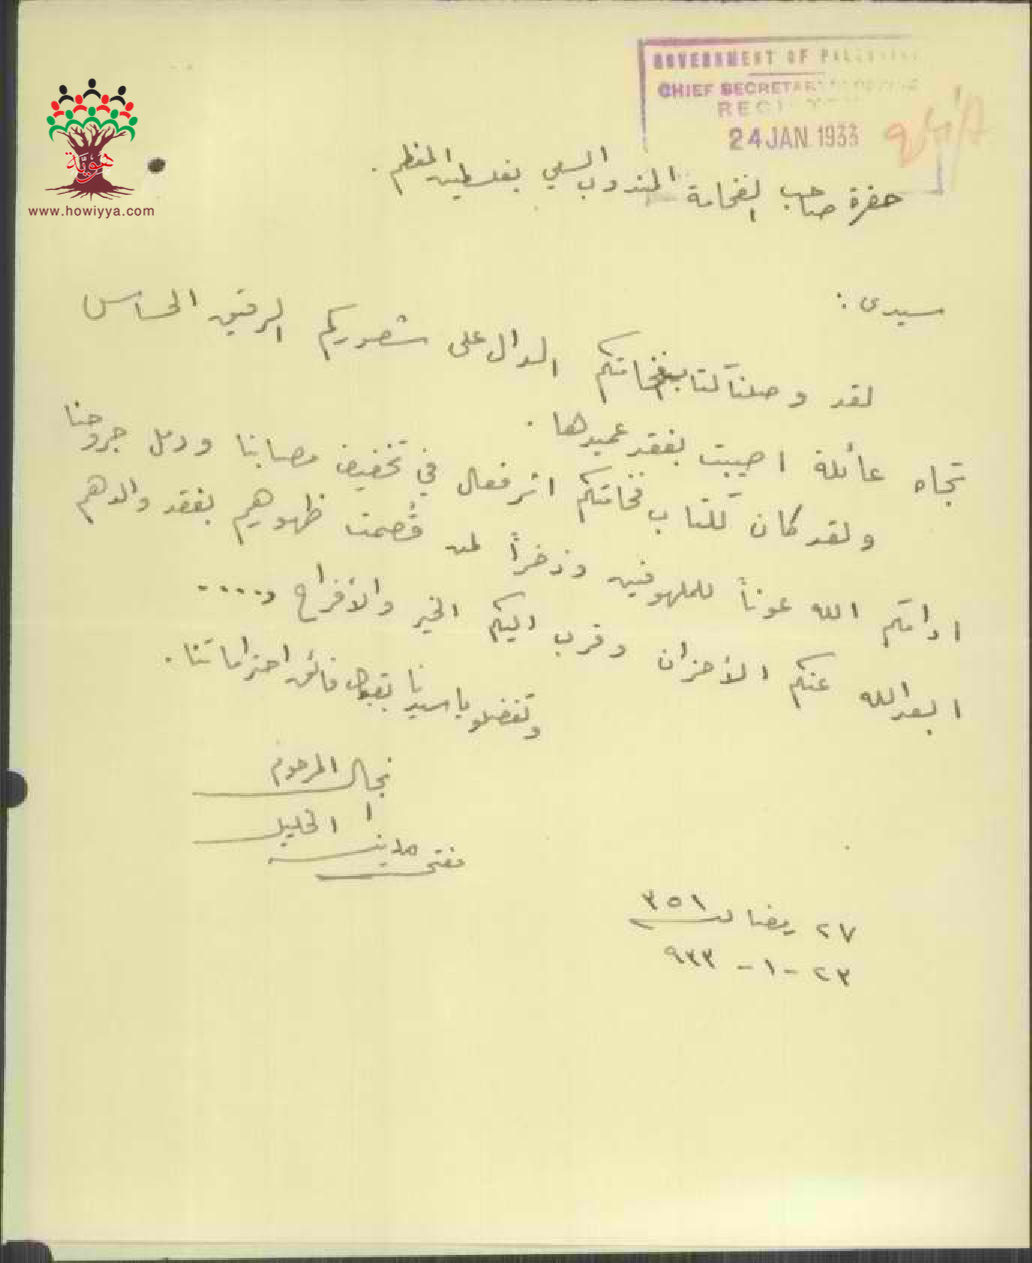 GOVERNMENT OF PALESTINE
CHIEF SECRETARY'S OFFICE
REGISTRY
24 JAN. 1933
هوية
www.howiyya.com
حضرة صاحب الفخامة المندوب السامي بفلسطين المعظم .
سيدي :
لقد وصلنا كتاب فخامتكم الدال على شعوركم الرقيق الحساس
تجاه عائلة اصيبت بفقد عميدها .
ولقد كان لكتاب فخامتكم اثر فعال في تخفيض مصابنا ودمل جروحنا
ادامكم الله عوناً للملهوفين وذخراً لمن قُصمت ظهورهم بفقد والدهم
ابعد الله عنكم الأحزان وقرب اليكم الخير والأفراح و....
وتفضلوا يا سيدنا بقبول فائق احتراماتنا .
انجال المرحوم
مفتي مدينة الخليل
٢٧ رمضان ٣٥١
٢٣ - ١ - ٩٣٣